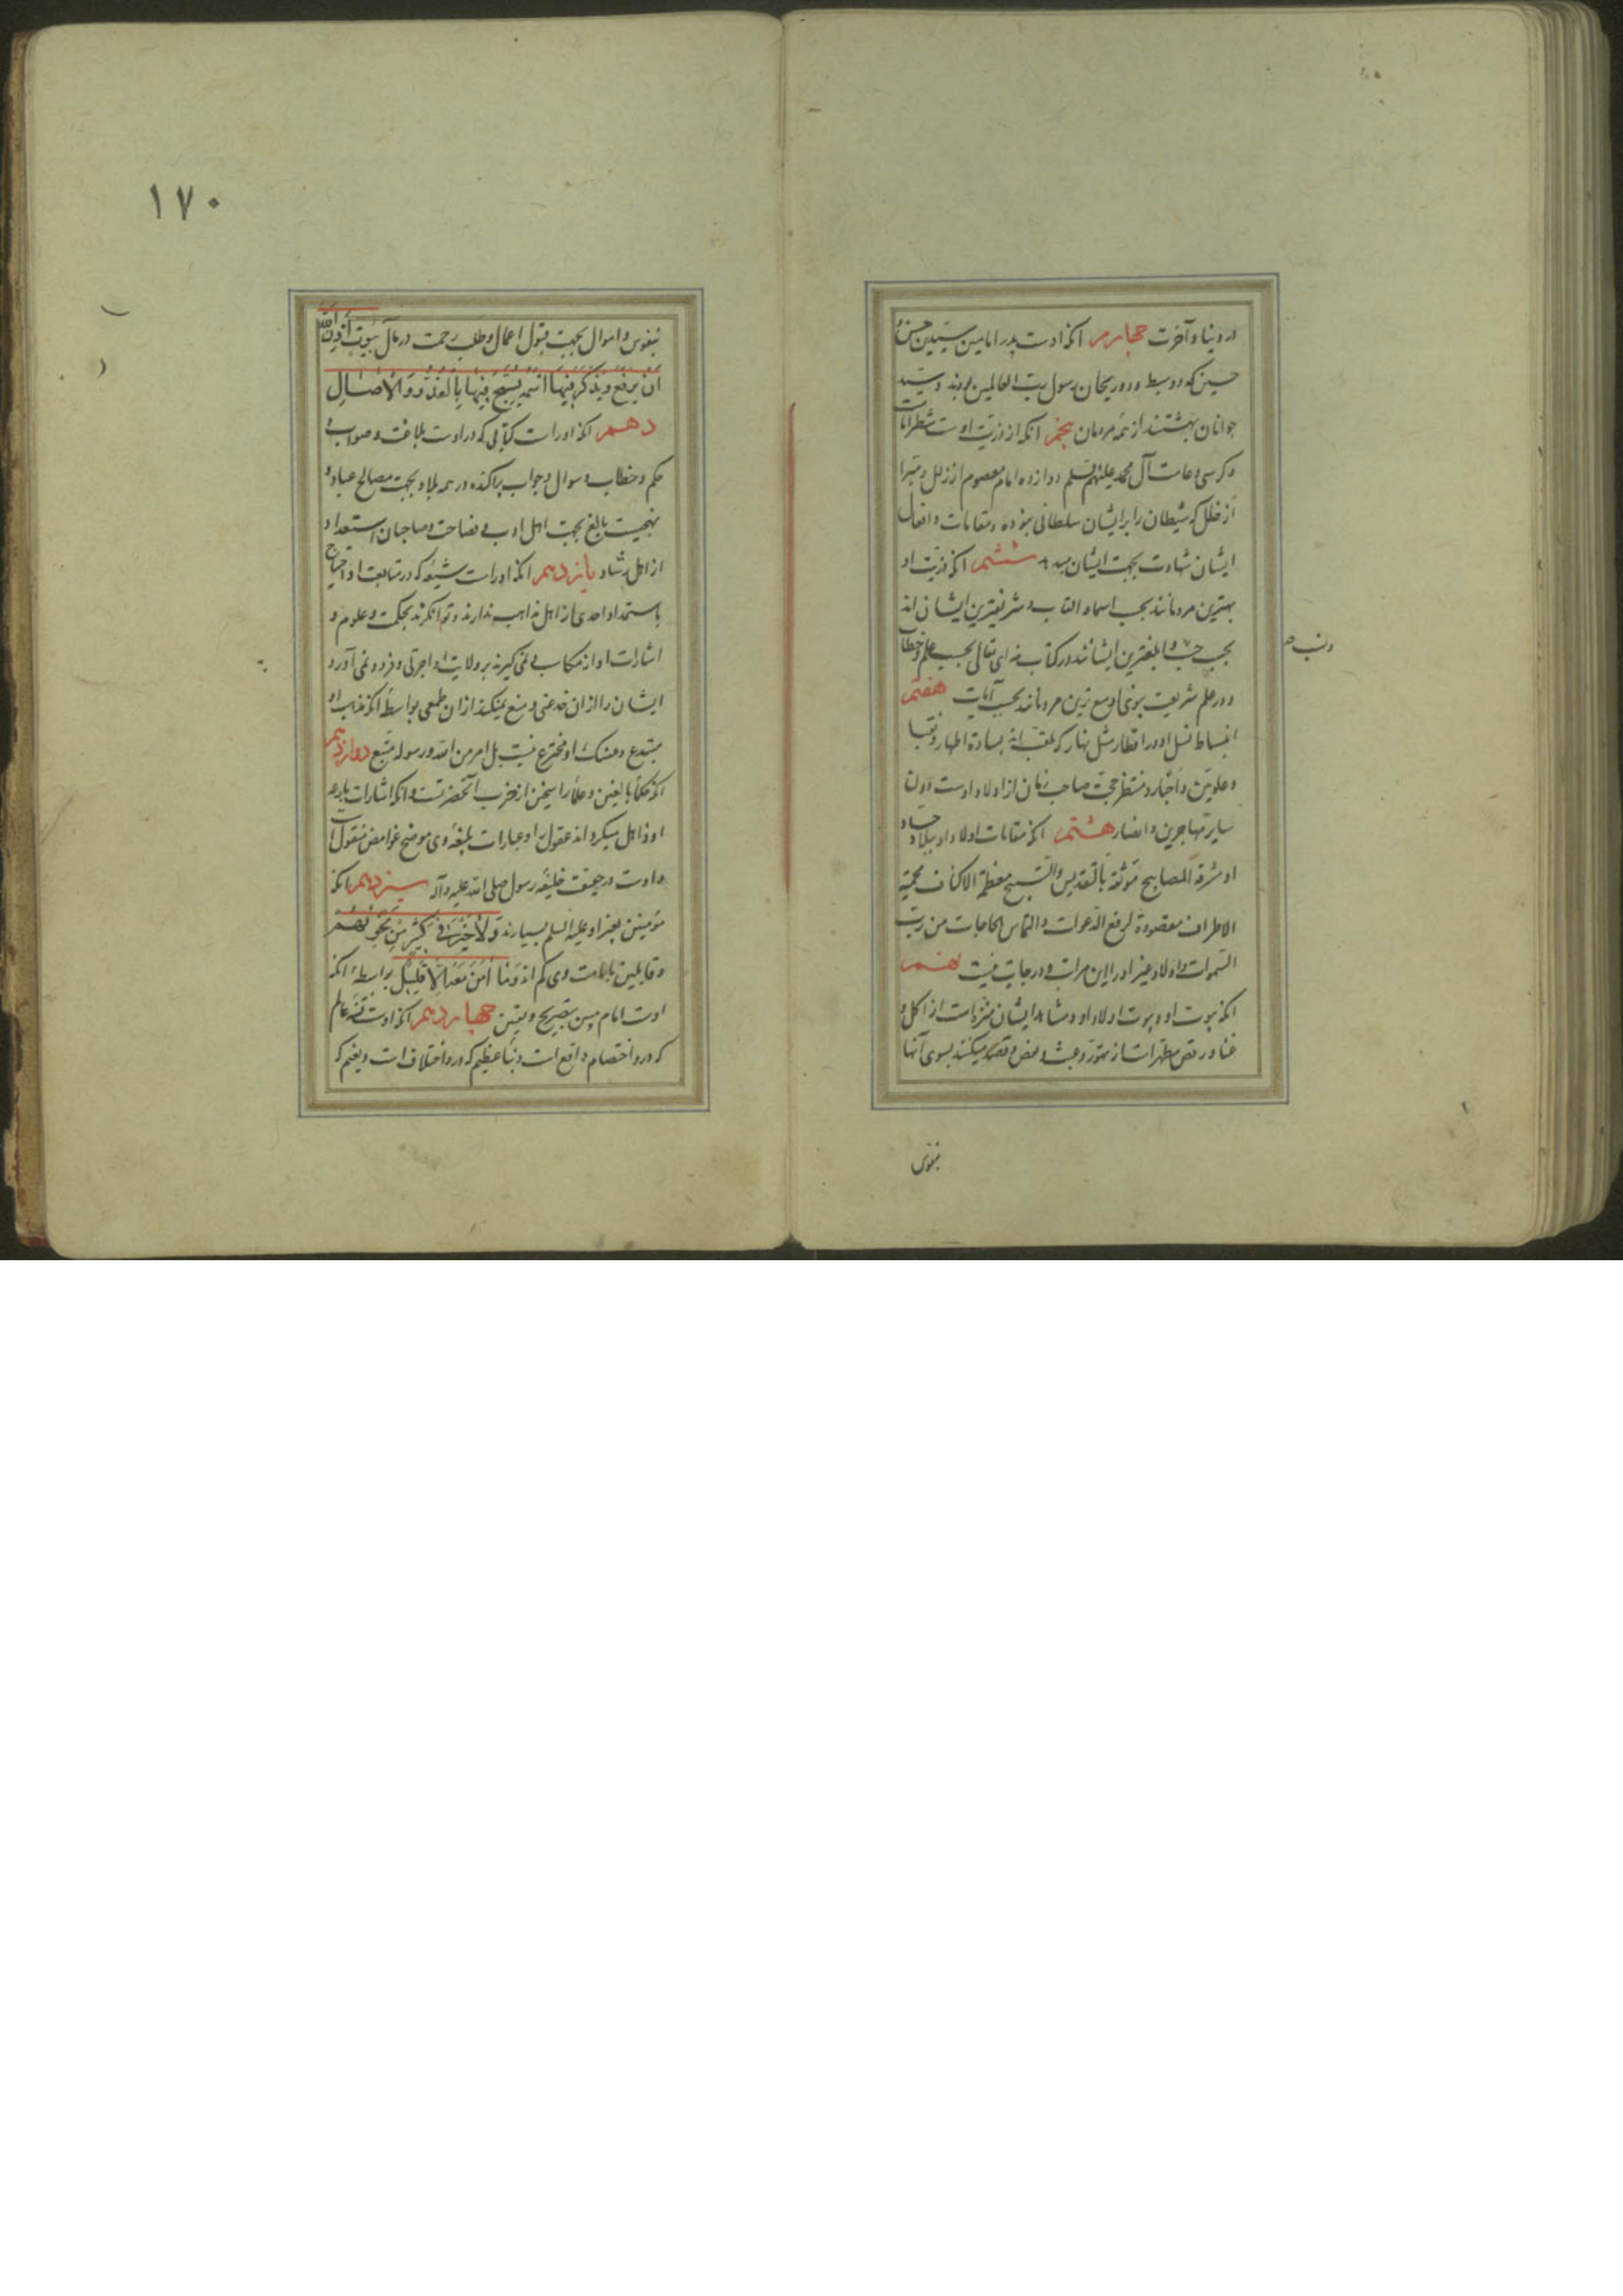 در دنیا و آخرت چهارم انکه اوست پدر امامین سیدین حسن و
حسین که دو سبط و دو ریحان رسول رب العالمین بودند و سید
جوانان بهشتند از همه مردمان پنجم انکه از ذریت اوست
و کرسی آل محمد علیهم السلم دوازده امام معصوم از زلل و مبرا
از خلل که شیطان را بر ایشان سلطانی نبوده و مقامات و افعال
ایشان شهادت بجهت ایشان میدهد ششم انکه ذریت او
بهترین مردمانند بحسب اسما و القاب و شریفترین ایشان اند
بحسب حسب و ابلغترین ایشانند در کتاب خدای تعالی بحسب علم و خطاب
و نسب صح
و در علم شریعت نبوی اوسع ترین مردمانند بحسب آیات هفتم
انبساط نسل او در اقطار مثل نهار که ملقب اند بساده اطهار و نقبا
و علویین و اخبار و منتظر حجت صاحب زمان از اولاد اوست دون
سایر مهاجرین و انصار هشتم انکه مقامات اولاد او ببلاد
او مشرقة المصابیح مونقة بالتقدیس والتسبیح معظمة الاکناف محمیة
الاطراف مقصودة لرفع الدعوات و التماس الحاجات من رب
السموات و اولاد غیر او را این مراتب و درجات نیست نهم
انکه بیوت او و بیوت اولاد او و مشاهد ایشان منزه است از اکل و
غنا و رقص مطهر است از و عبث و قصد میکنند بسوی آنها
بنفوس
۱۷۰
بنفوس و اموال بجهت قبول اعمال و طلب رحمت در مآل بیوت اذن الله
ان ترفع ویذکر فیها اسمه یسبح فیها بالغدو والاصال
دهم انکه اوراست کتابی که در اوست بلاغت و صواب و
حکم و خطاب و سوال و جواب پراکنده در همه بلاد بجهت مصالح عباد و
بالغ بجهت اهل ادب فصاحت و صاحبان استعداد
از اهل رشاد یازدهم انکه اوراست شیعه که در متابعت او احتیاج
باستمداد احدی از اهل مذاهب ندارند و توانگرند بحکمت و علوم و
اشارات او از مکاسب و نمی گیرند بر ولایت او اجرتی و فرود نمی آورد
ایشان را از ان خدعتی و منع نمیکند از ان طمعی بواسطهٔ انکه مذهب او
مبتدع و منسک او مخترع نیست بل امر من الله و رسوله متبع دوازدهم
انکه حکماء بالغین و علماء راسخین از حزب آنحضرتست و انکه اشارات بارعه
او ذاهل میگرداند عقول را و عبارات بلیغهٔ وی موضح غوامض منقول است
و اوست در حقیقت خلیفه رسول صلی الله علیه وآله سیزدهم انکه
مؤمنین بغیر او علیه السلم بسیارند و لا خیر فی کثیر من نجویهم
و قابلین بامامت وی کم اند و ما امن معه الا قلیل بواسطه انکه
اوست امام مبین بتصریح و یقین چهاردهم انکه اوست قسم عالم
که درو اختصام واقع است و نبأ عظیم که درو اختلاف است و نعیم که